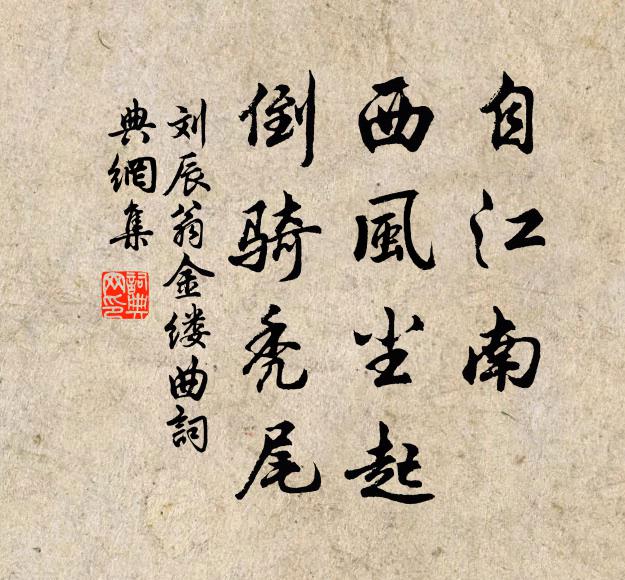 自江南
西風尘起
倒骑秃尾
刘辰翁金缕曲詞
典網集
詞典网印